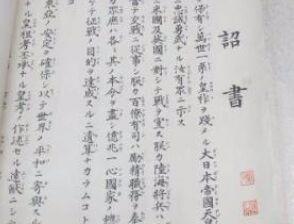 詔書
保有シ萬世一系ノ皇祚ヲ踐メル大日本帝國
忠誠勇武ナル汝有衆ニ示ス
米國及英國ニ對シテ戰ヲ宣ス朕カ陸海將兵ハ
テ交戰ニ從事シ朕カ百僚有司ハ勵精職務ヲ奉
カ衆庶ハ各〻其ノ本分ヲ盡シ億兆一心國家ノ總
テ征戰ノ目的ヲ達成スルニ遺算ナカラムコト
東亞ノ安定ヲ確保シ以テ世界ノ平和ニ寄與ス
ナル皇祖考丕承ナル皇考ノ作述セル遠猷ニシ